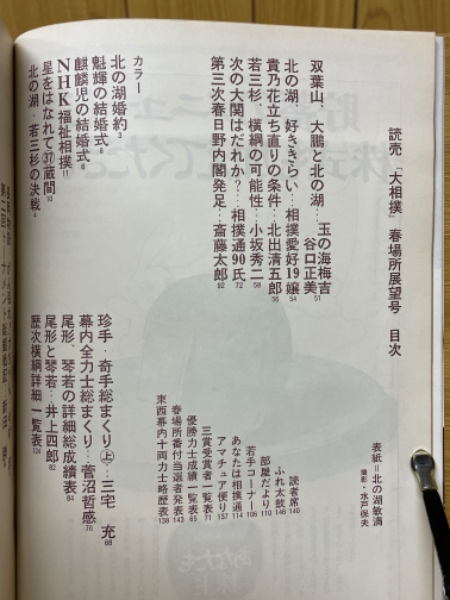 読売「大相撲」春場所展望号 目次
表紙=北の湖敏満
撮影・水戸保夫
双葉山、大鵬と北の湖…玉の海梅吉
谷口正美 51
北の湖、好ききらい…相撲愛好19嬢 54
貴乃花立ち直りの条件…北出清五郎 56
若三杉、横綱の可能性…小坂秀二 58
次の大関はだれか?…相撲通90氏 72
第三次春日野内閣発足…斎藤太郎 92
カラー
北の湖婚約 3
魁輝の結婚式 8
麒麟児の結婚式 6
NHK福祉相撲 11
星をはなれて㊲蔵間 10
北の湖・若三杉の決戦 4
読者席 140
ふれ太鼓 146
部屋だより 110
若手コーナー 106
あなたは相撲通 114
アマチュア便り 137
三賞受賞者一覧表 71
優勝力士成績一覧表 65
春場所番付当選者発表 143
東西幕内十両力士略歴表 138
珍手・奇手総まくり㊤…三宅 充 88
幕内全力士総まくり…菅沼哲感 76
尾形、琴若の詳細総成績表 84
尾形と琴若…井上四郎 82
歴次横綱詳細一覧表 124